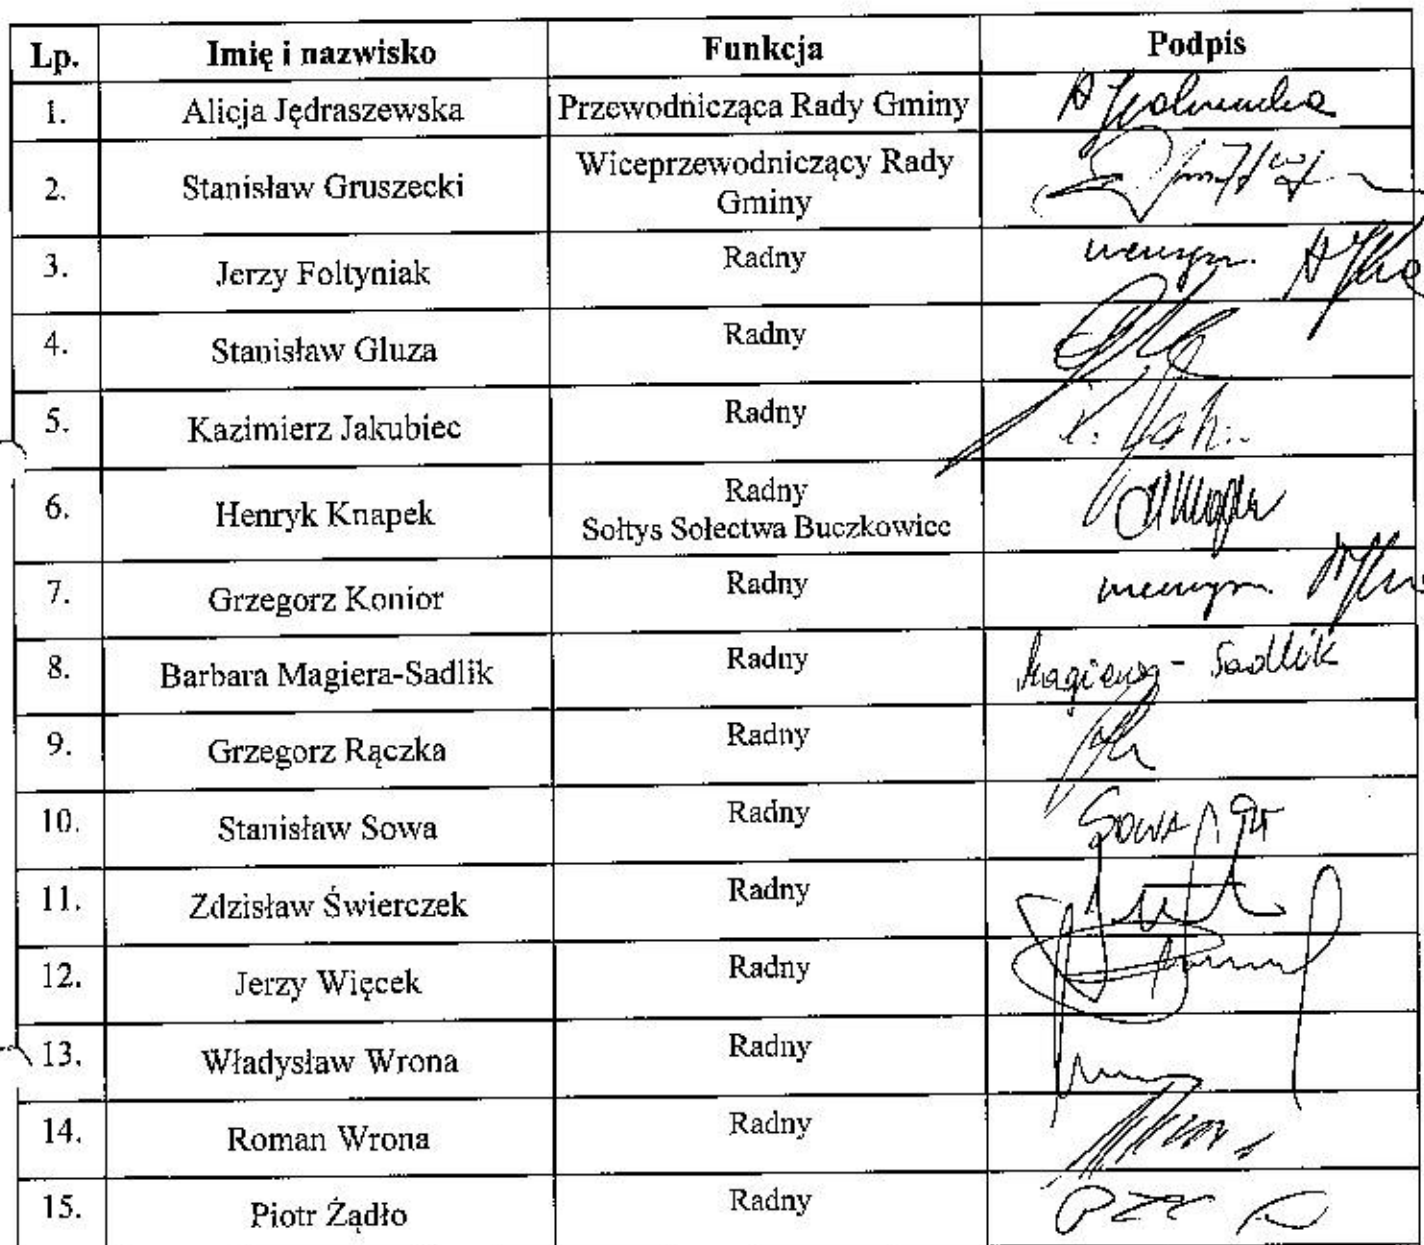 Lp. Imię i nazwisko Funkcja Podpis
1. Alicja Jędraszewska Przewodnicząca Rady Gminy
2. Stanisław Gruszecki Wiceprzewodniczący Rady
Gminy
3. Jerzy Foltyniak Radny
4. Stanisław Gluza Radny
5. Kazimierz Jakubiec Radny
6. Henryk Knapek Radny
Sołtys Sołectwa Buczkowice
7. Grzegorz Konior Radny
8. Barbara Magiera-Sadlik Radny Magiera - Sadlik
9. Grzegorz Rączka Radny
10. Stanisław Sowa Radny SOWA
11. Zdzisław Świerczek Radny
12. Jerzy Więcek Radny
13. Władysław Wrona Radny
14. Roman Wrona Radny
15. Piotr Żądło Radny